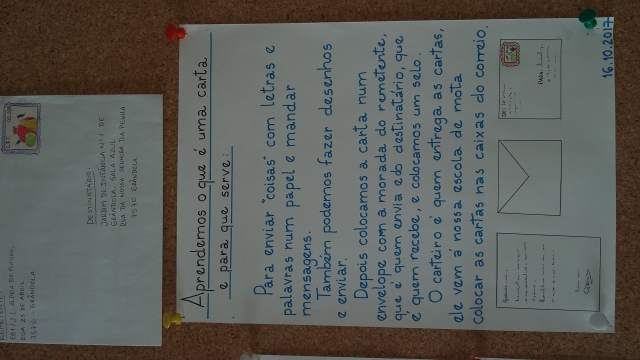 Aprendemos o que é uma carta
e para que serve:
Para enviar "coisas" com letras e
palavras num papel e mandar
mensagens.
Também podemos fazer desenhos
e enviar.
Depois colocamos a carta num
envelope com a morada do remetente,
que é quem envia e do destinatário, que
é quem recebe, e colocamos um selo.
O carteiro é quem entrega as cartas,
ele vem à nossa escola de mota
colocar as cartas nas caixas do correio.
16.10.2017
DESTINATÁRIO:
JARDIM DE INFÂNCIA Nº1 DE
GRÂNDOLA SALA AZUL
RUA DA NOSSA SENHORA DA PENHA
GRÂNDOLA
RUA 25 DE ABRIL
GRÂNDOLA
PARA: